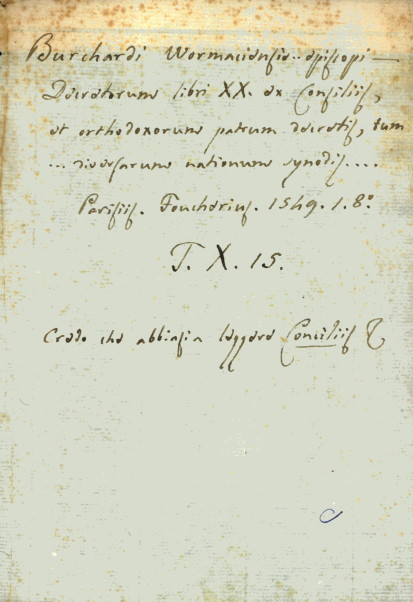 Burchardi Wormaciensis episcopi —
Decretorum libri XX. ex Consiliis,
et orthodoxorum patrum decretis, tum
... diversarum nationum synodis....
Parisiis. Foucherius. 1549. 1. 8º
T. X. 15.
Credo che abbiasi a leggere Conciliis